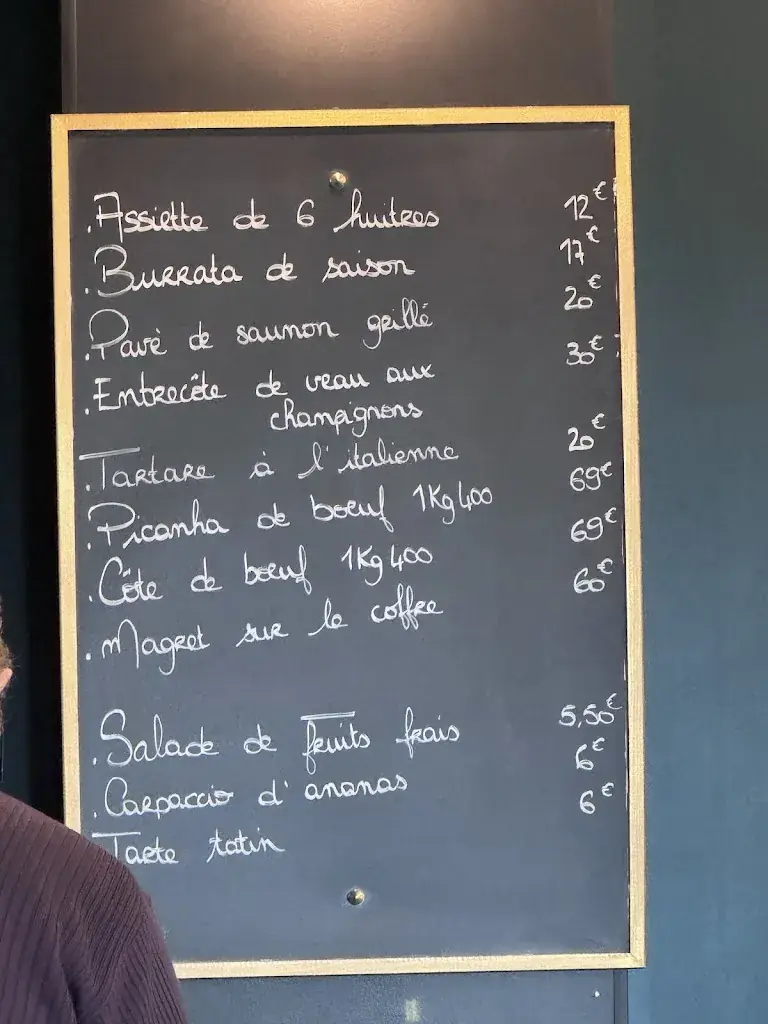 . Assiette de 6 huitres 12€
. Burrata de saison 17€
. Pavé de saumon grillé 20€
. Entrecôte de veau aux 30€
champignons
. Tartare à l'italienne 20€
. Picanha de boeuf 1Kg400 69€
. Côte de boeuf 1Kg400 69€
. Magret sur le coffre 60€
. Salade de fruits frais 5,50€
. Carpaccio d'ananas 6€
Tarte tatin 6€